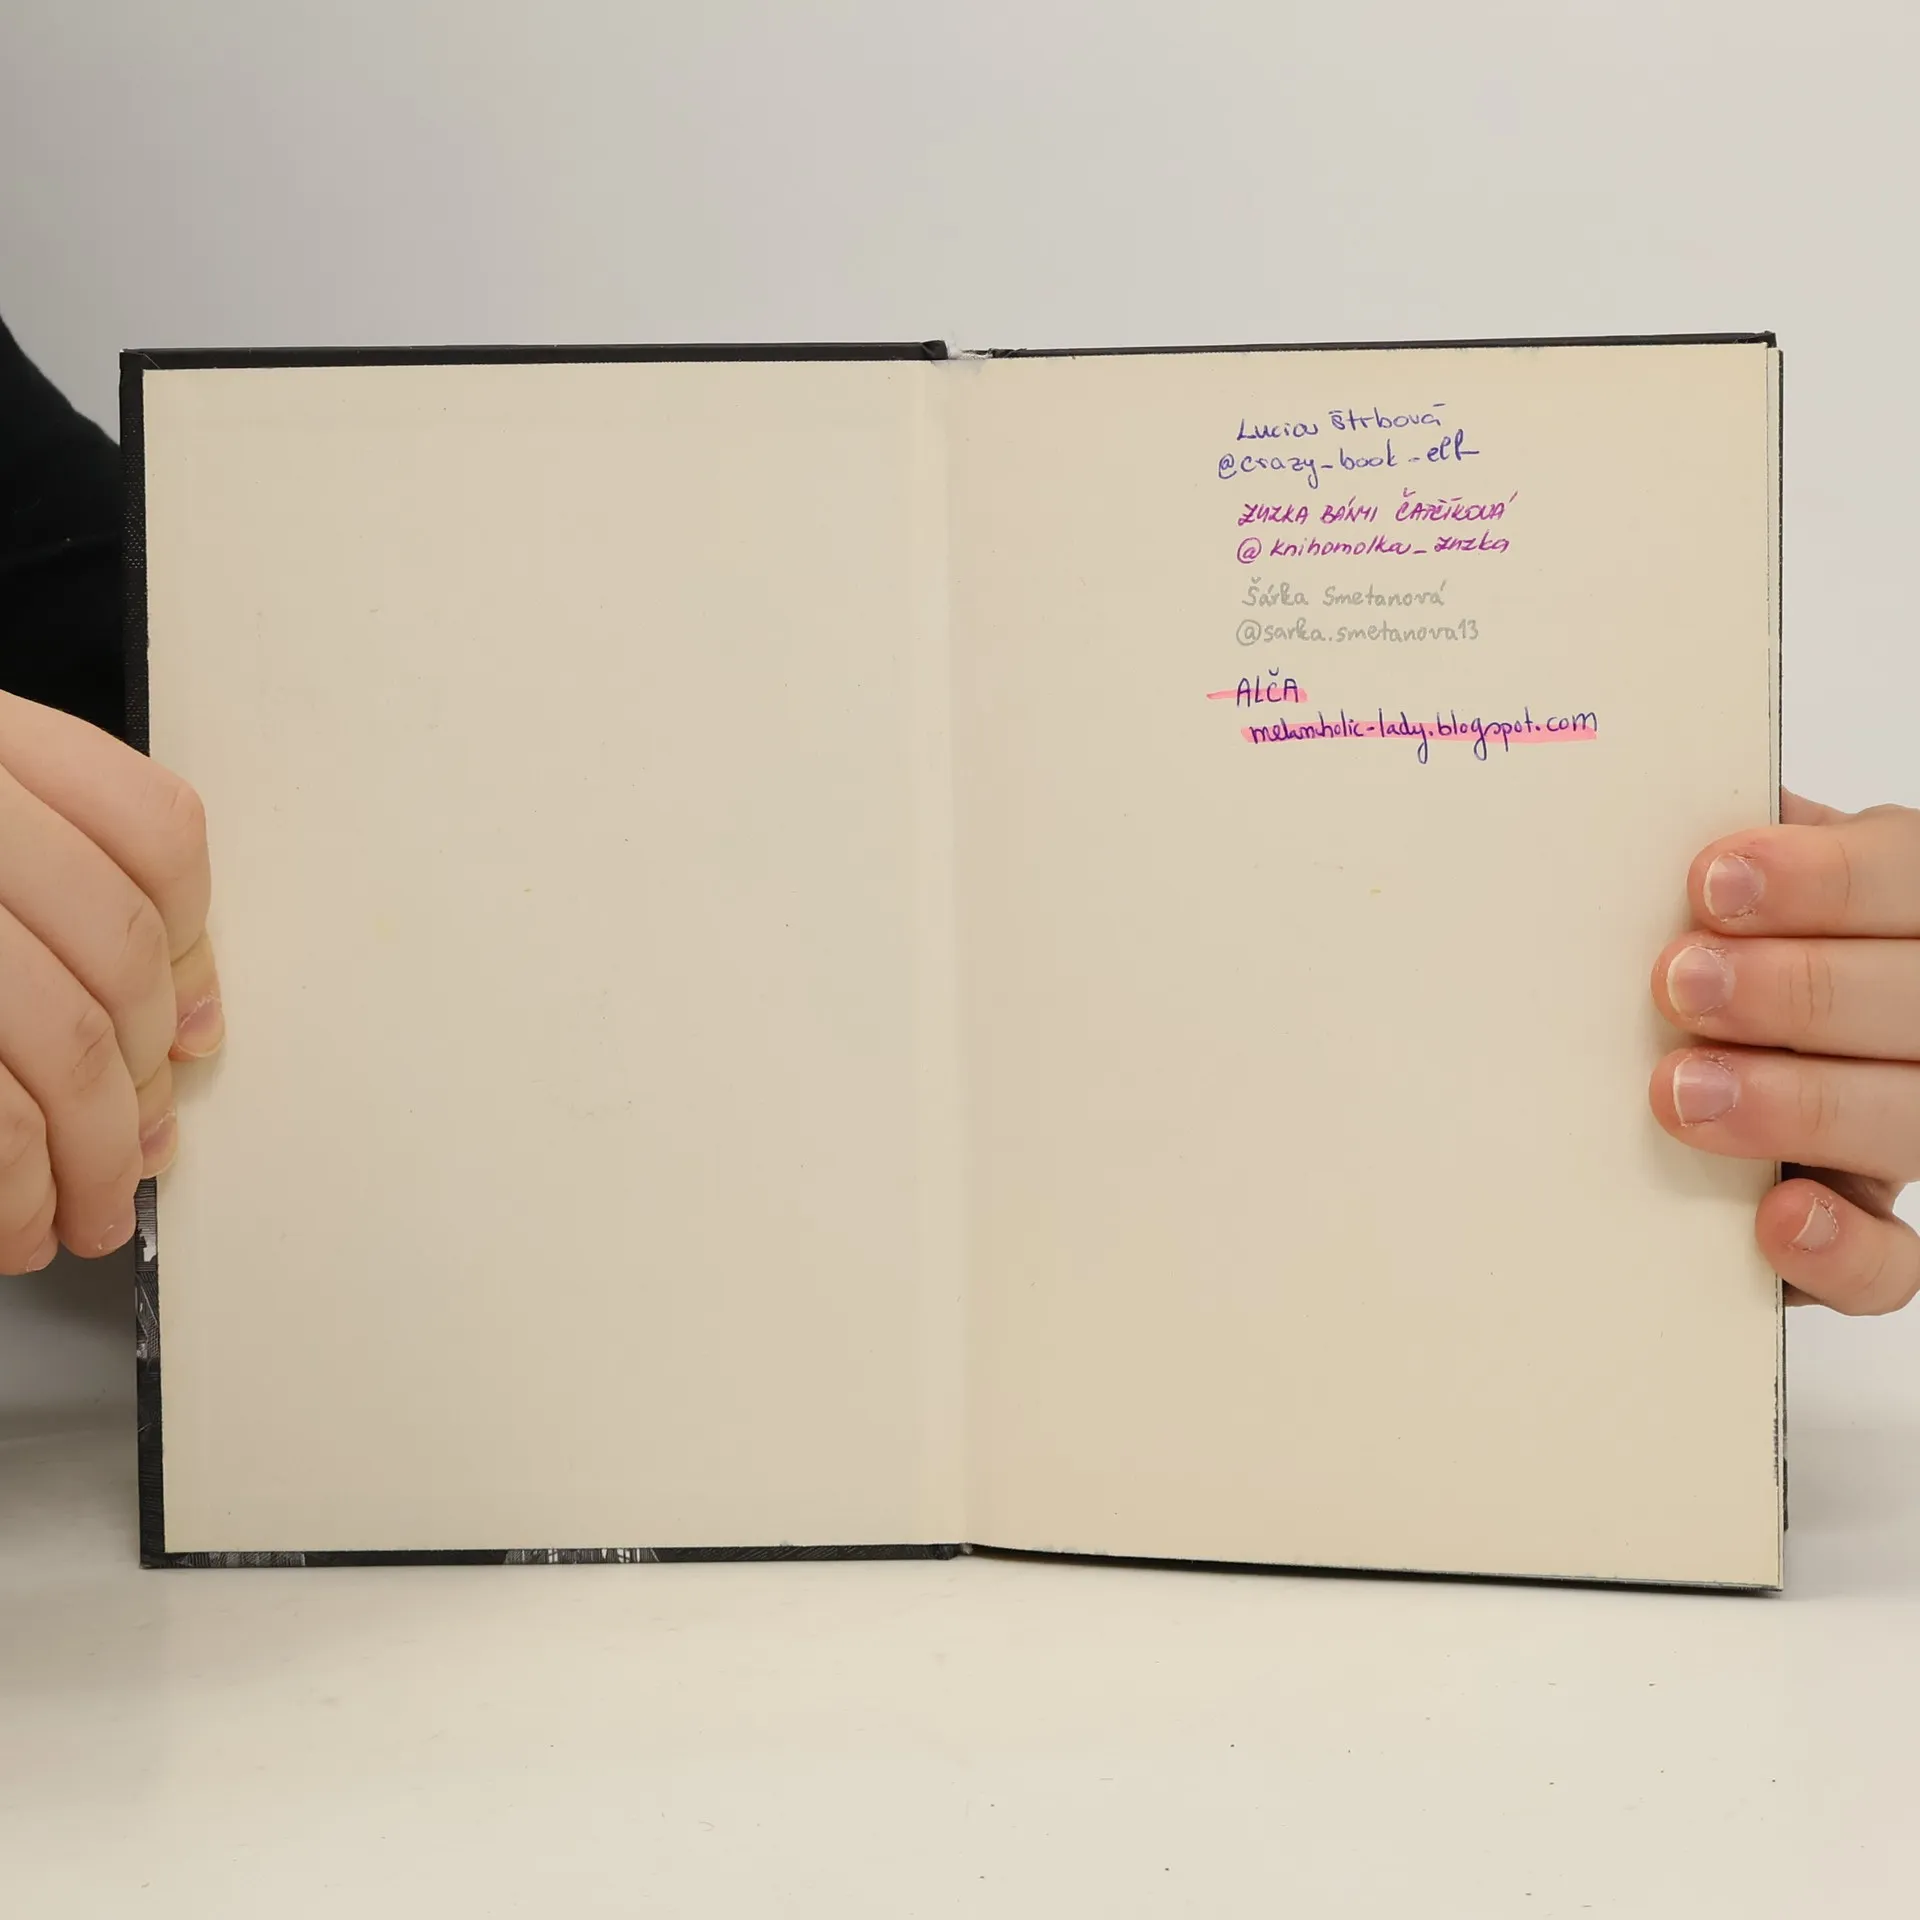 Lucia Štrbová
@crazy_book_elf
ZUZKA BÁNYI
@knihomolka_zuzka
Šárka Smetanová
@sarka.smetanova13
ALČA
melancholic-lady.blogspot.com